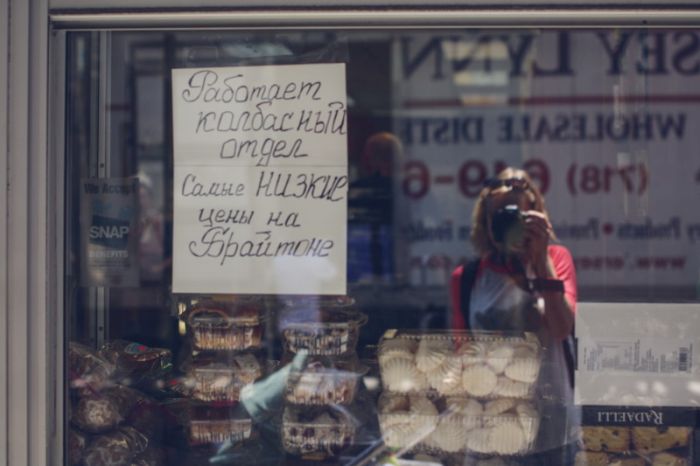 Работает
колбасный
отдел
Самые НИЗКИЕ
цены на
Брайтоне
We Accept
SNAP
BENEFITS
SEY LYNN
WHOLESALE DISTR
(718) 649-6
Products • Provisions
www.
RADAELLI